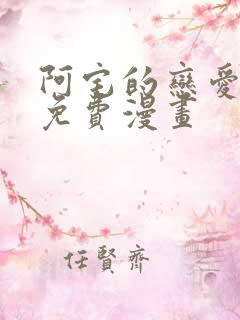 阿宅的戀愛
免費漫畫
任賢齊